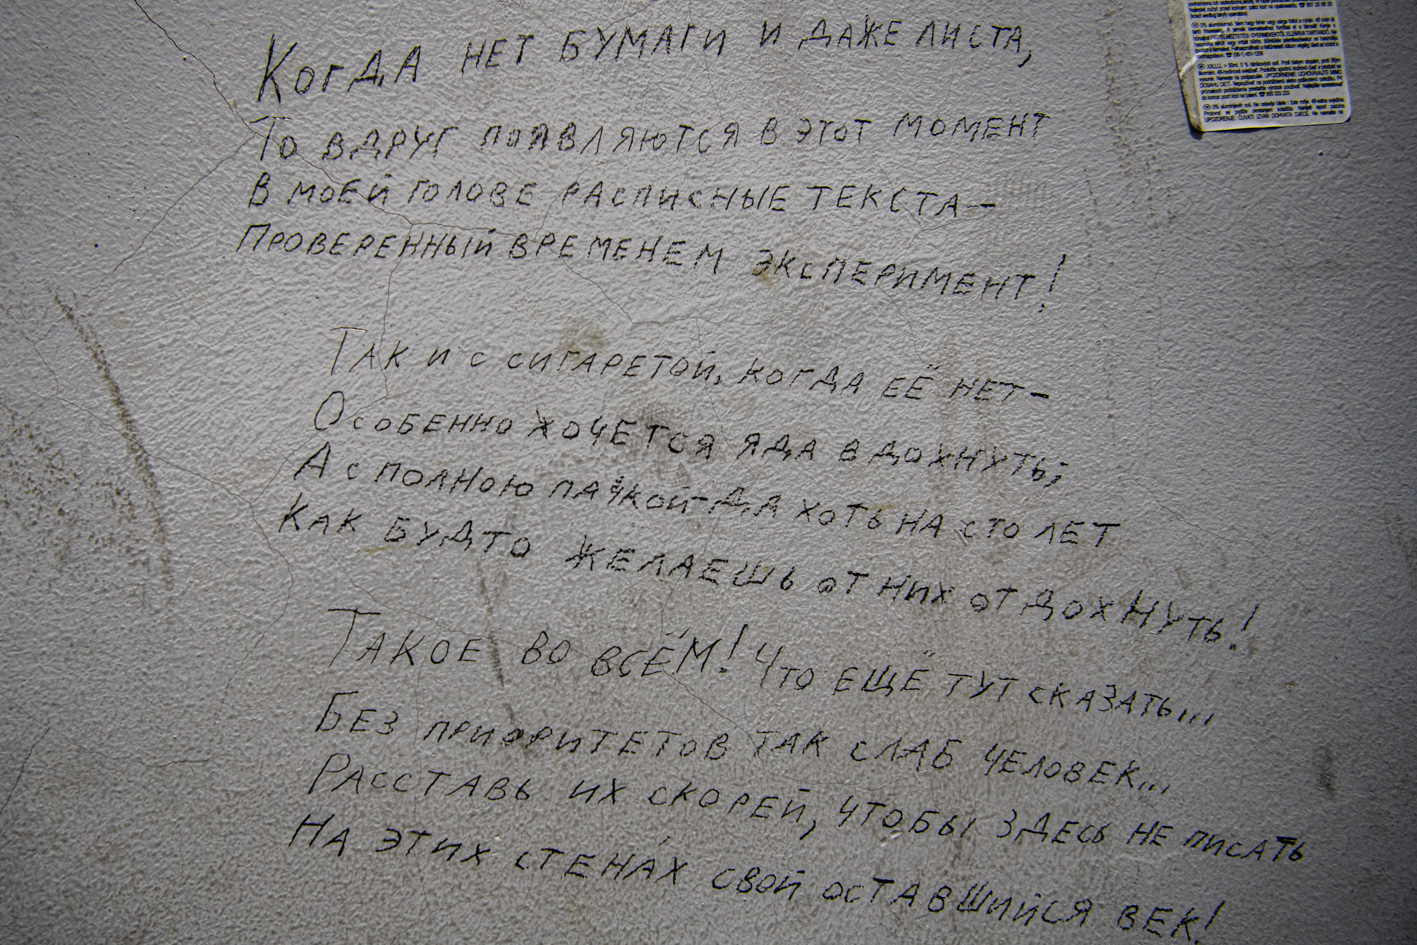 Когда нет бумаги и даже листа,
То вдруг появляются в этот момент
В моей голове расписные текста—
Проверенный временем эксперимент!
Так и с сигаретой, когда её нет—
Особенно хочется яда вдохнуть;
А с полною пачкой—да хоть на сто лет
Как будто желаешь от них отдохнуть!
Такое во всём! Что ещё тут сказать...
Без приоритетов так слаб человек...
Расставь их скорей, чтобы здесь не писать
На этих стенах свой оставшийся век!